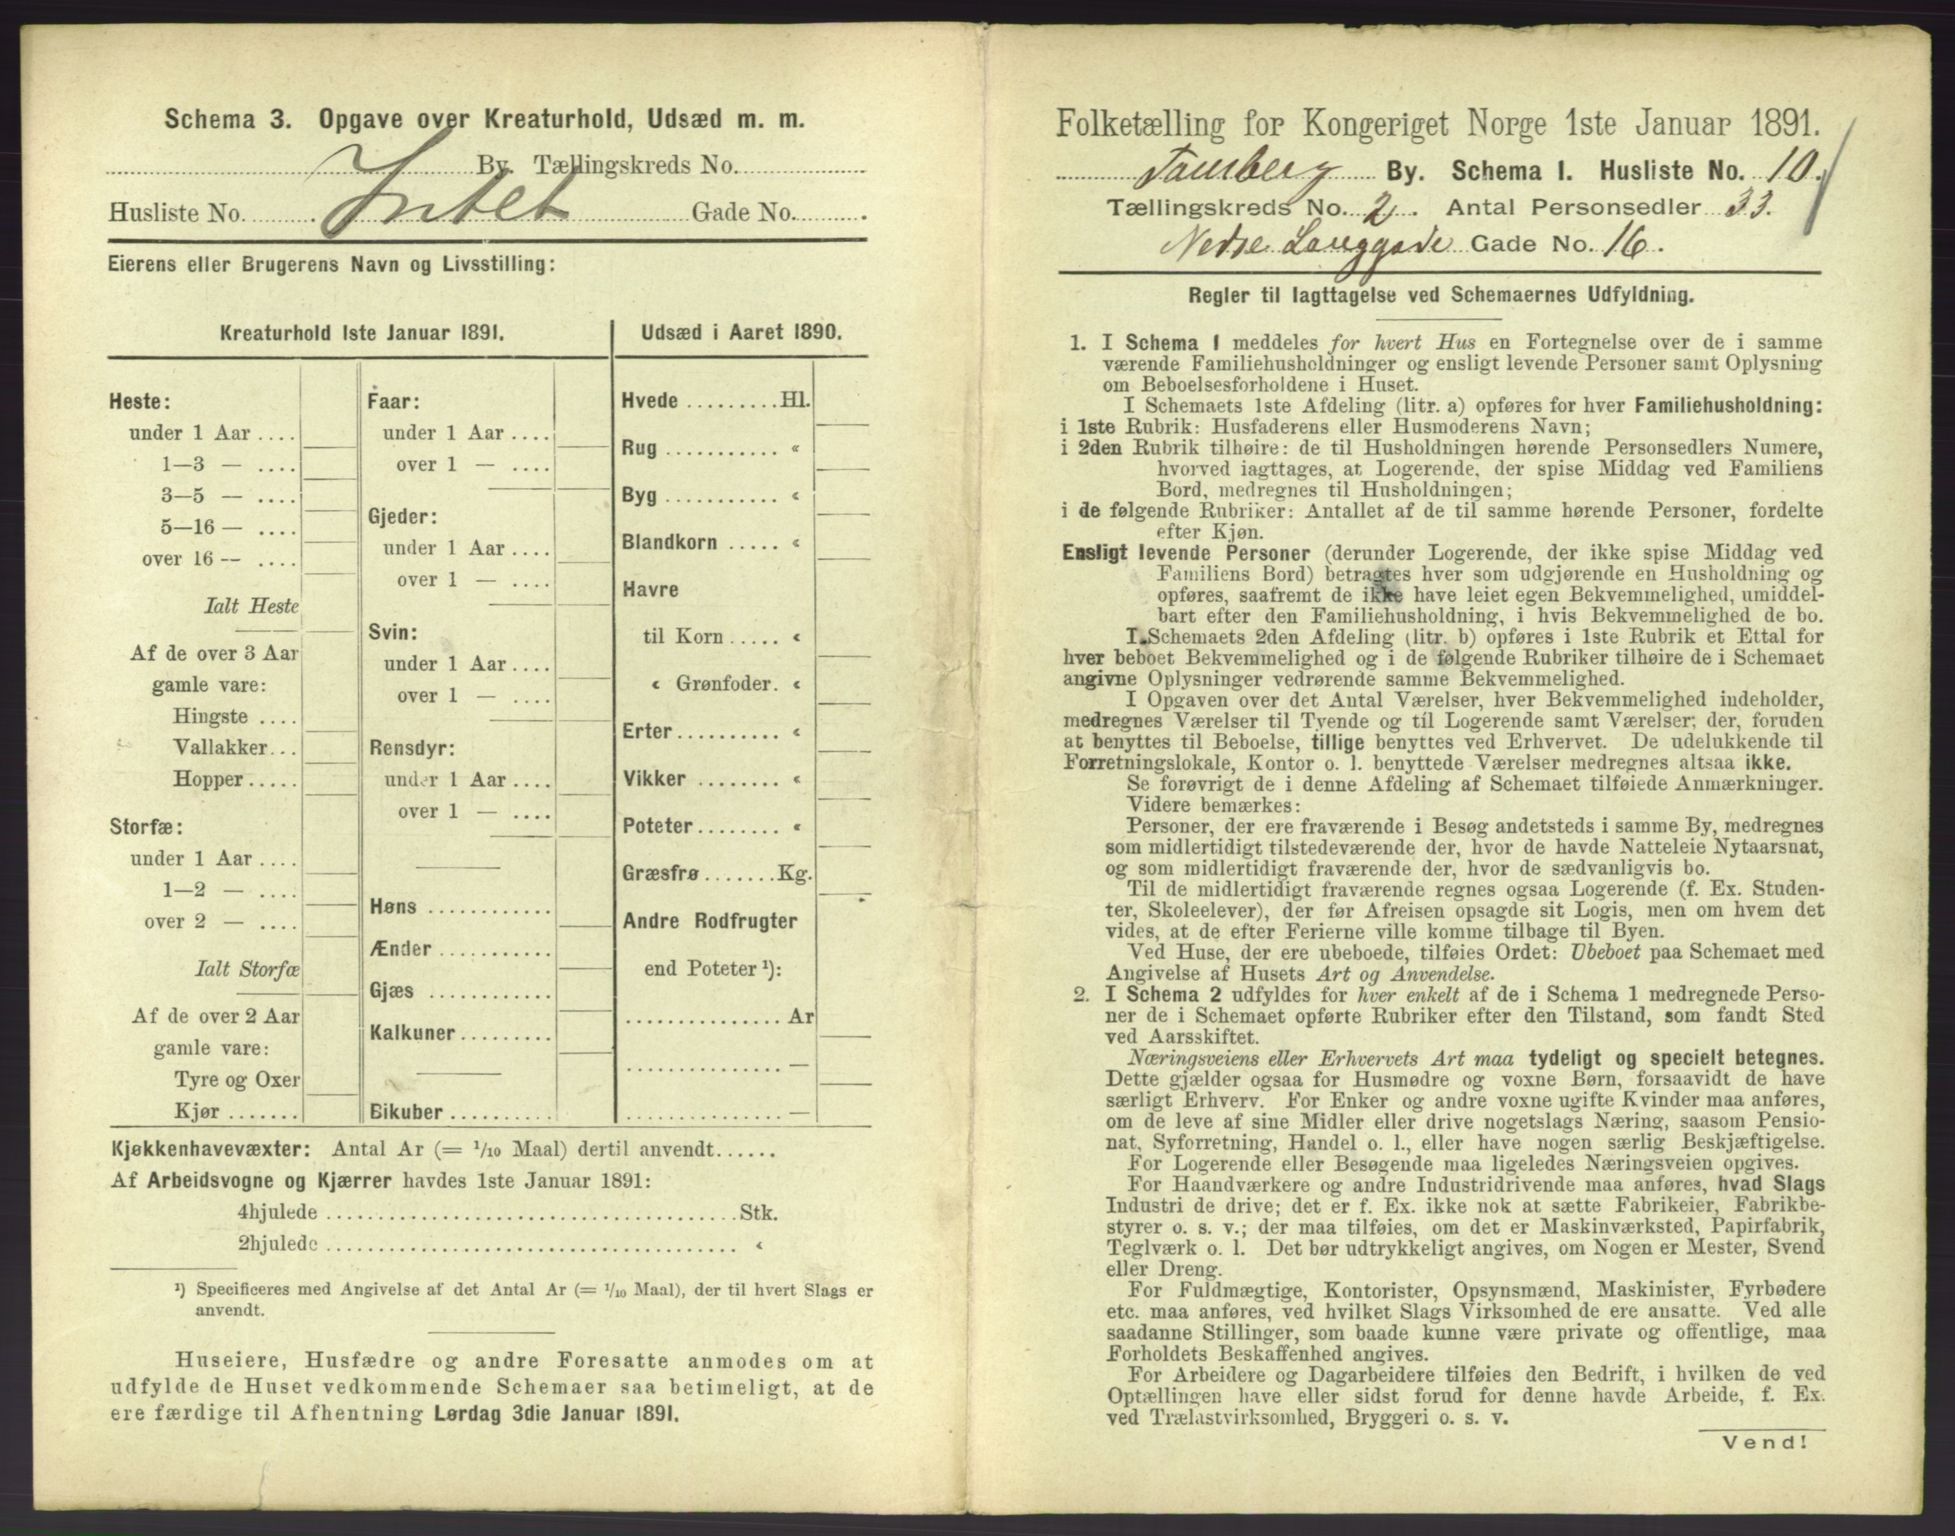 Schema 3. Opgave over Kreaturhold, Udsæd m. m.
By. Tællingskreds No.
Husliste No. Intet Gade No.
Eierens eller Brugerens Navn og Livsstilling:
Kreaturhold 1ste Januar 1891.
Heste:
under 1 Aar
1—3 —
3—5 —
5—16 —
over 16 —
Ialt Heste
Af de over 3 Aar
gamle vare:
Hingste
Vallakker
Hopper
Storfæ:
under 1 Aar
1—2 —
over 2 —
Ialt Storfæ
Af de over 2 Aar
gamle vare:
Tyre og Oxer
Kjør
Faar:
under 1 Aar
over 1 —
Gjeder:
under 1 Aar
over 1 —
Svin:
under 1 Aar
over 1 —
Rensdyr:
under 1 Aar
over 1 —
Høns
Ænder
Gjæs
Kalkuner
Bikuber
Udsæd i Aaret 1890.
Hvede Hl.
Rug «
Byg «
Blandkorn «
Havre
til Korn «
« Grønfoder. «
Erter «
Vikker «
Poteter «
Græsfrø Kg.
Andre Rodfrugter
end Poteter ¹):
Ar
—
—
Kjøkkenhavevæxter: Antal Ar (= 1/10 Maal) dertil anvendt
Af Arbeidsvogne og Kjærrer havdes 1ste Januar 1891:
4hjulede Stk.
2hjulede «
¹) Specificeres med Angivelse af det Antal Ar (= 1/10 Maal), der til hvert Slags er
anvendt.
Huseiere, Husfædre og andre Foresatte anmodes om at
udfylde de Huset vedkommende Schemaer saa betimeligt, at de
ere færdige til Afhentning Lørdag 3die Januar 1891.
Folketælling for Kongeriget Norge 1ste Januar 1891.
Tønsberg By. Schema I. Husliste No. 10.
Tællingskreds No. 2. Antal Personsedler 33.
Nedre Langgade Gade No. 16.
Regler til Iagttagelse ved Schemaernes Udfyldning.
1. I Schema 1 meddeles for hvert Hus en Fortegnelse over de i samme
værende Familiehusholdninger og ensligt levende Personer samt Oplysning
om Beboelsesforholdene i Huset.
I Schemaets 1ste Afdeling (litr. a) opføres for hver Familiehusholdning:
i 1ste Rubrik: Husfaderens eller Husmoderens Navn;
i 2den Rubrik tilhøire: de til Husholdningen hørende Personsedlers Numere,
hvorved iagttages, at Logerende, der spise Middag ved Familiens
Bord, medregnes til Husholdningen;
i de følgende Rubriker: Antallet af de til samme hørende Personer, fordelte
efter Kjøn.
Ensligt levende Personer (derunder Logerende, der ikke spise Middag ved
Familiens Bord) betragtes hver som udgjørende en Husholdning og
opføres, saafremt de ikke have leiet egen Bekvemmelighed, umiddel-
bart efter den Familiehusholdning, i hvis Bekvemmelighed de bo.
I Schemaets 2den Afdeling (litr. b) opføres i 1ste Rubrik et Ettal for
hver beboet Bekvemmelighed og i de følgende Rubriker tilhøire de i Schemaet
angivne Oplysninger vedrørende samme Bekvemmelighed.
I Opgaven over det Antal Værelser, hver Bekvemmelighed indeholder,
medregnes Værelser til Tyende og til Logerende samt Værelser, der, foruden
at benyttes til Beboelse, tillige benyttes ved Erhvervet. De udelukkende til
Forretningslokale, Kontor o. l. benyttede Værelser medregnes altsaa ikke.
Se forøvrigt de i denne Afdeling af Schemaet tilføiede Anmærkninger.
Videre bemærkes:
Personer, der ere fraværende i Besøg andetsteds i samme By, medregnes
som midlertidigt tilstedeværende der, hvor de havde Natteleie Nytaarsnat,
og som midlertidigt fraværende der, hvor de sædvanligvis bo.
Til de midlertidigt fraværende regnes ogsaa Logerende (f. Ex. Studen-
ter, Skoleelever), der før Afreisen opsagde sit Logis, men om hvem det
vides, at de efter Ferierne ville komme tilbage til Byen.
Ved Huse, der ere ubeboede, tilføies Ordet: Ubeboet paa Schemaet med
Angivelse af Husets Art og Anvendelse.
2. I Schema 2 udfyldes for hver enkelt af de i Schema 1 medregnede Perso-
ner de i Schemaet opførte Rubriker efter den Tilstand, som fandt Sted
ved Aarsskiftet.
Næringsveiens eller Erhvervets Art maa tydeligt og specielt betegnes.
Dette gjælder ogsaa for Husmødre og voxne Børn, forsaavidt de have
særligt Erhverv. For Enker og andre voxne ugifte Kvinder maa anføres,
om de leve af sine Midler eller drive nogetslags Næring, saasom Pensio-
nat, Syforretning, Handel o. l., eller have nogen særlig Beskjæftigelse.
For Logerende eller Besøgende maa ligeledes Næringsveien opgives.
For Haandværkere og andre Industridrivende maa anføres, hvad Slags
Industri de drive; det er f. Ex. ikke nok at sætte Fabrikeier, Fabrikbe-
styrer o. s. v.; der maa tilføies, om det er Maskinværksted, Papirfabrik,
Teglværk o. l. Det bør udtrykkeligt angives, om Nogen er Mester, Svend
eller Dreng.
For Fuldmægtige, Kontorister, Opsynsmænd, Maskinister, Fyrbødere
etc. maa anføres, ved hvilket Slags Virksomhed de ere ansatte. Ved alle
saadanne Stillinger, som baade kunne være private og offentlige, maa
Forholdets Beskaffenhed angives.
For Arbeidere og Dagarbeidere tilføies den Bedrift, i hvilken de ved
Optællingen have eller sidst forud for denne havde Arbeide, f. Ex.
ved Trælastvirksomhed, Bryggeri o. s. v.
Vend!